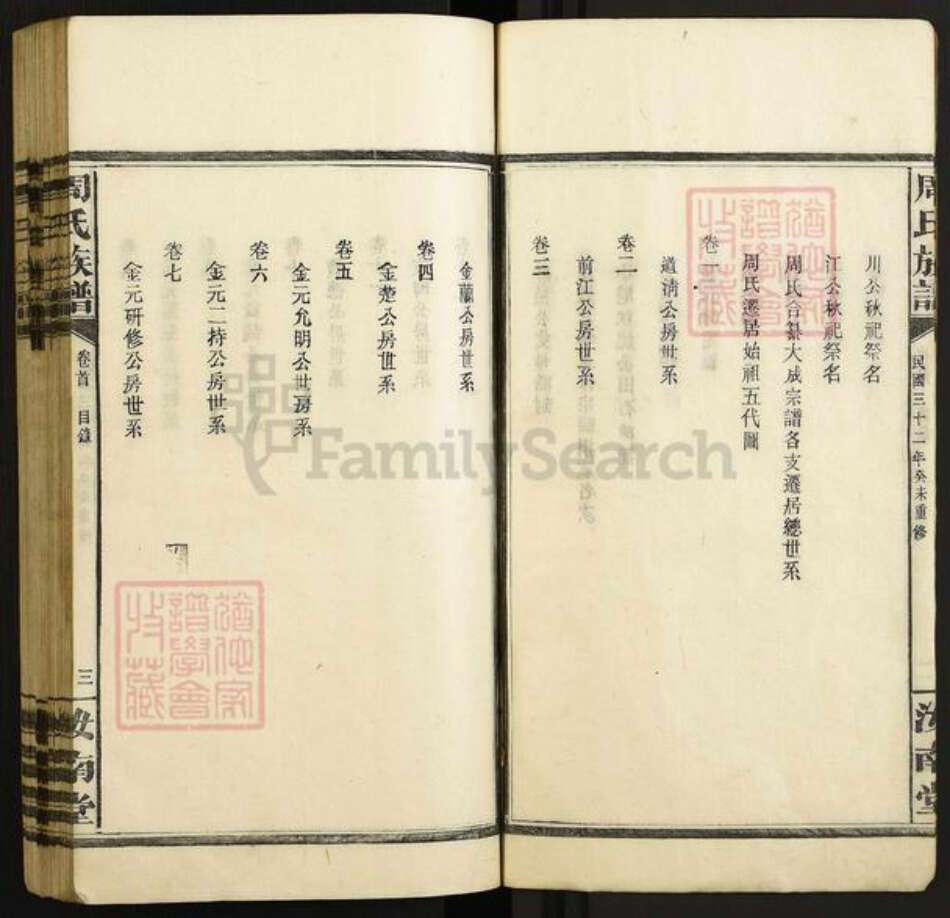 周氏族譜
民國三十二年癸未重修
汝南堂
川公秋祀祭名
江公秋祀祭名
周氏合纂大成宗譜各支遷居總世系
周氏遷居始祖五代圖
卷一
道清公房世系
卷二
前江公房世系
卷三
金蘭公房世系
卷四
金楚公房世系
卷五
金元允明公世房系
卷六
金元二持公房世系
卷七
金元研修公房世系
周氏族譜
卷首
目錄
三
汝南堂
猶他家譜學會收藏
猶他家譜學會收藏
FamilySearch